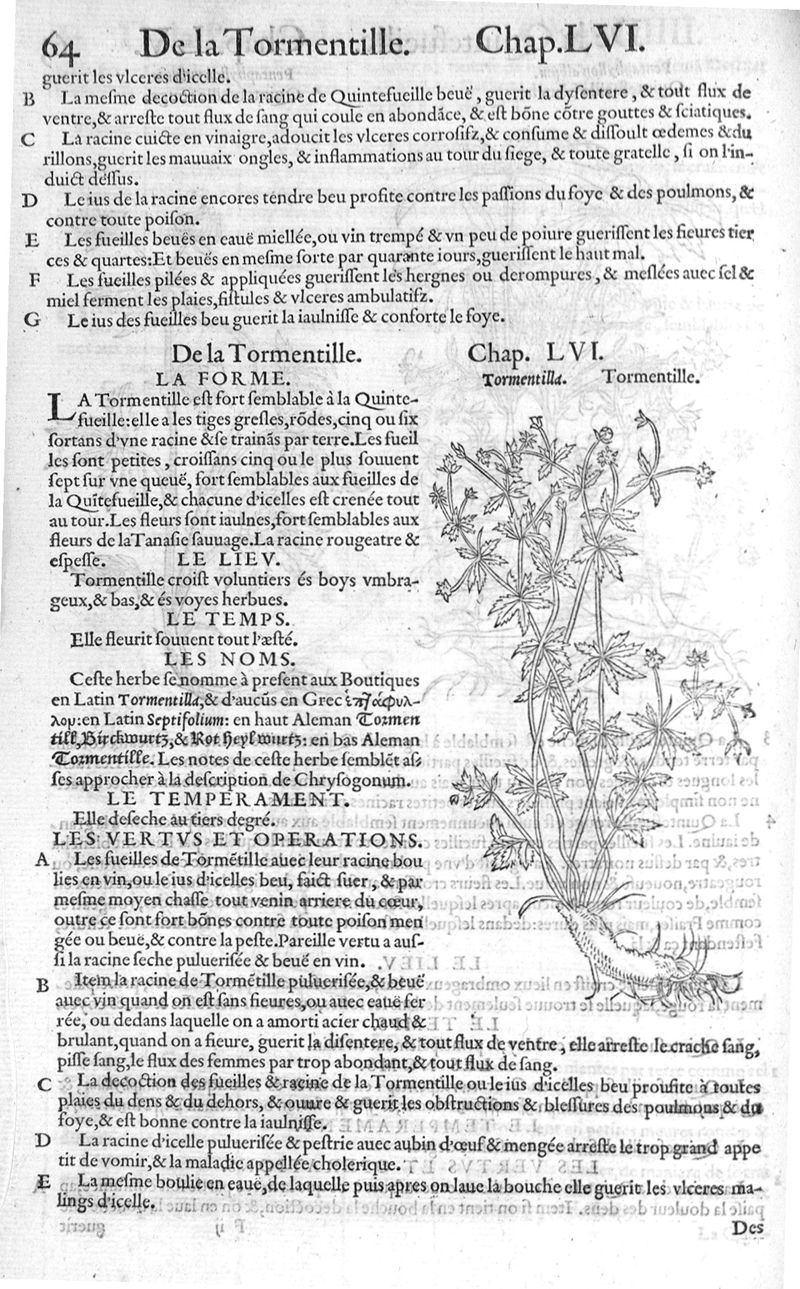 64 De la Tormentille. Chap. LVI.
guerit les vlceres d'icelle.
B La mesme decoction de la racine de Quintefueille beuë, guerit la dysentere, & tout flux de
ventre,& arreste tout flux de sang qui coule en abondāce, & est bōne cōtre gouttes & sciatiques.
C La racine cuicte en vinaigre,adoucit les vlceres corrosifz,& consume & dissoult œdemes & du
rillons,guerit les mauuaix ongles, & inflammations au tour du siege, & toute gratelle, si on l'in-
duict dessus.
D Le ius de la racine encores tendre beu profite contre les passions du foye & des poulmons, &
contre toute poison.
E Les fueilles beuës en eauë miellée,ou vin trempé & vn peu de poiure guerissent les fieures tier
ces & quartes:Et beuës en mesme sorte par quarante iours,guerissent le haut mal.
F Les fueilles pilées & appliquées guerissent les hergnes ou derompures, & meslées auec sel &
miel ferment les plaies,fistules & vlceres ambulatifz.
G Le ius des fueilles beu guerit la iaulnisse & conforte le foye.
De la Tormentille. Chap. LVI.
LA FORME.
Tormentilla. Tormentille.
LA Tormentille est fort semblable à la Quinte-
fueille:elle a les tiges gresles,rōdes,cinq ou six
sortans d'vne racine &se trainās par terre.Les fueil
les sont petites, croissans cinq ou le plus souuent
sept sur vne queuë, fort semblables aux fueilles de
la Quītefueille,& chacune d'icelles est crenée tout
au tour.Les fleurs sont iaulnes,fort semblables aux
fleurs de la Tanasie sauuage.La racine rougeatre &
espesse. LE LIEV.
Tormentille croist voluntiers és boys vmbra-
geux,& bas,& és voyes herbues.
LE TEMPS.
Elle fleurit souuent tout l'æsté.
LES NOMS.
Ceste herbe se nomme à present aux Boutiques
en Latin Tormentilla,& d'aucūs en Grec ἑπτάφυλ-
λον:en Latin Septifolium: en haut Aleman Tormen
till, Birckwurtz,& Rot Heylwurtz: en bas Aleman
Tormentille. Les notes de ceste herbe semblēt as
ses approcher à la description de Chrysogonum.
LE TEMPERAMENT.
Elle deseche au tiers degré.
LES VERTVS ET OPERATIONS.
A Les fueilles de Tormētille auec leur racine bou
lies en vin,ou le ius d'icelles beu, faict suer, & par
mesme moyen chasse tout venin arriere du cœur,
outre ce sont fort bōnes contre toute poison men
gée ou beuë,& contre la peste.Pareille vertu a aus-
si la racine seche puluerisée & beuë en vin.
B Item la racine de Tormētille puluerisée,& beuë
auec vin quand on est sans fieures,ou auec eauë fer
rée, ou dedans laquelle on a amorti acier chaud &
brulant,quand on a fieure, guerit la disentere, & tout flux de ventre, elle arreste le crache sang,
pisse sang,le flux des femmes par trop abondant,& tout flux de sang.
C La decoction des fueilles & racine de la Tormentille ou le ius d'icelles beu proufite à toutes
plaies du dens & du dehors, & ouure & guerit les obstructions & blessures des poulmons & du
foye,& est bonne contre la iaulnisse.
D La racine d'icelle puluerisée & pestrie auec aubin d'œuf & mengée arreste le trop grand appe
tit de vomir,& la maladie appellée cholerique.
E La mesme boulie en eauë,de laquelle puis apres on laue la bouche elle guerit les vlceres ma-
lings d'icelle.
Des